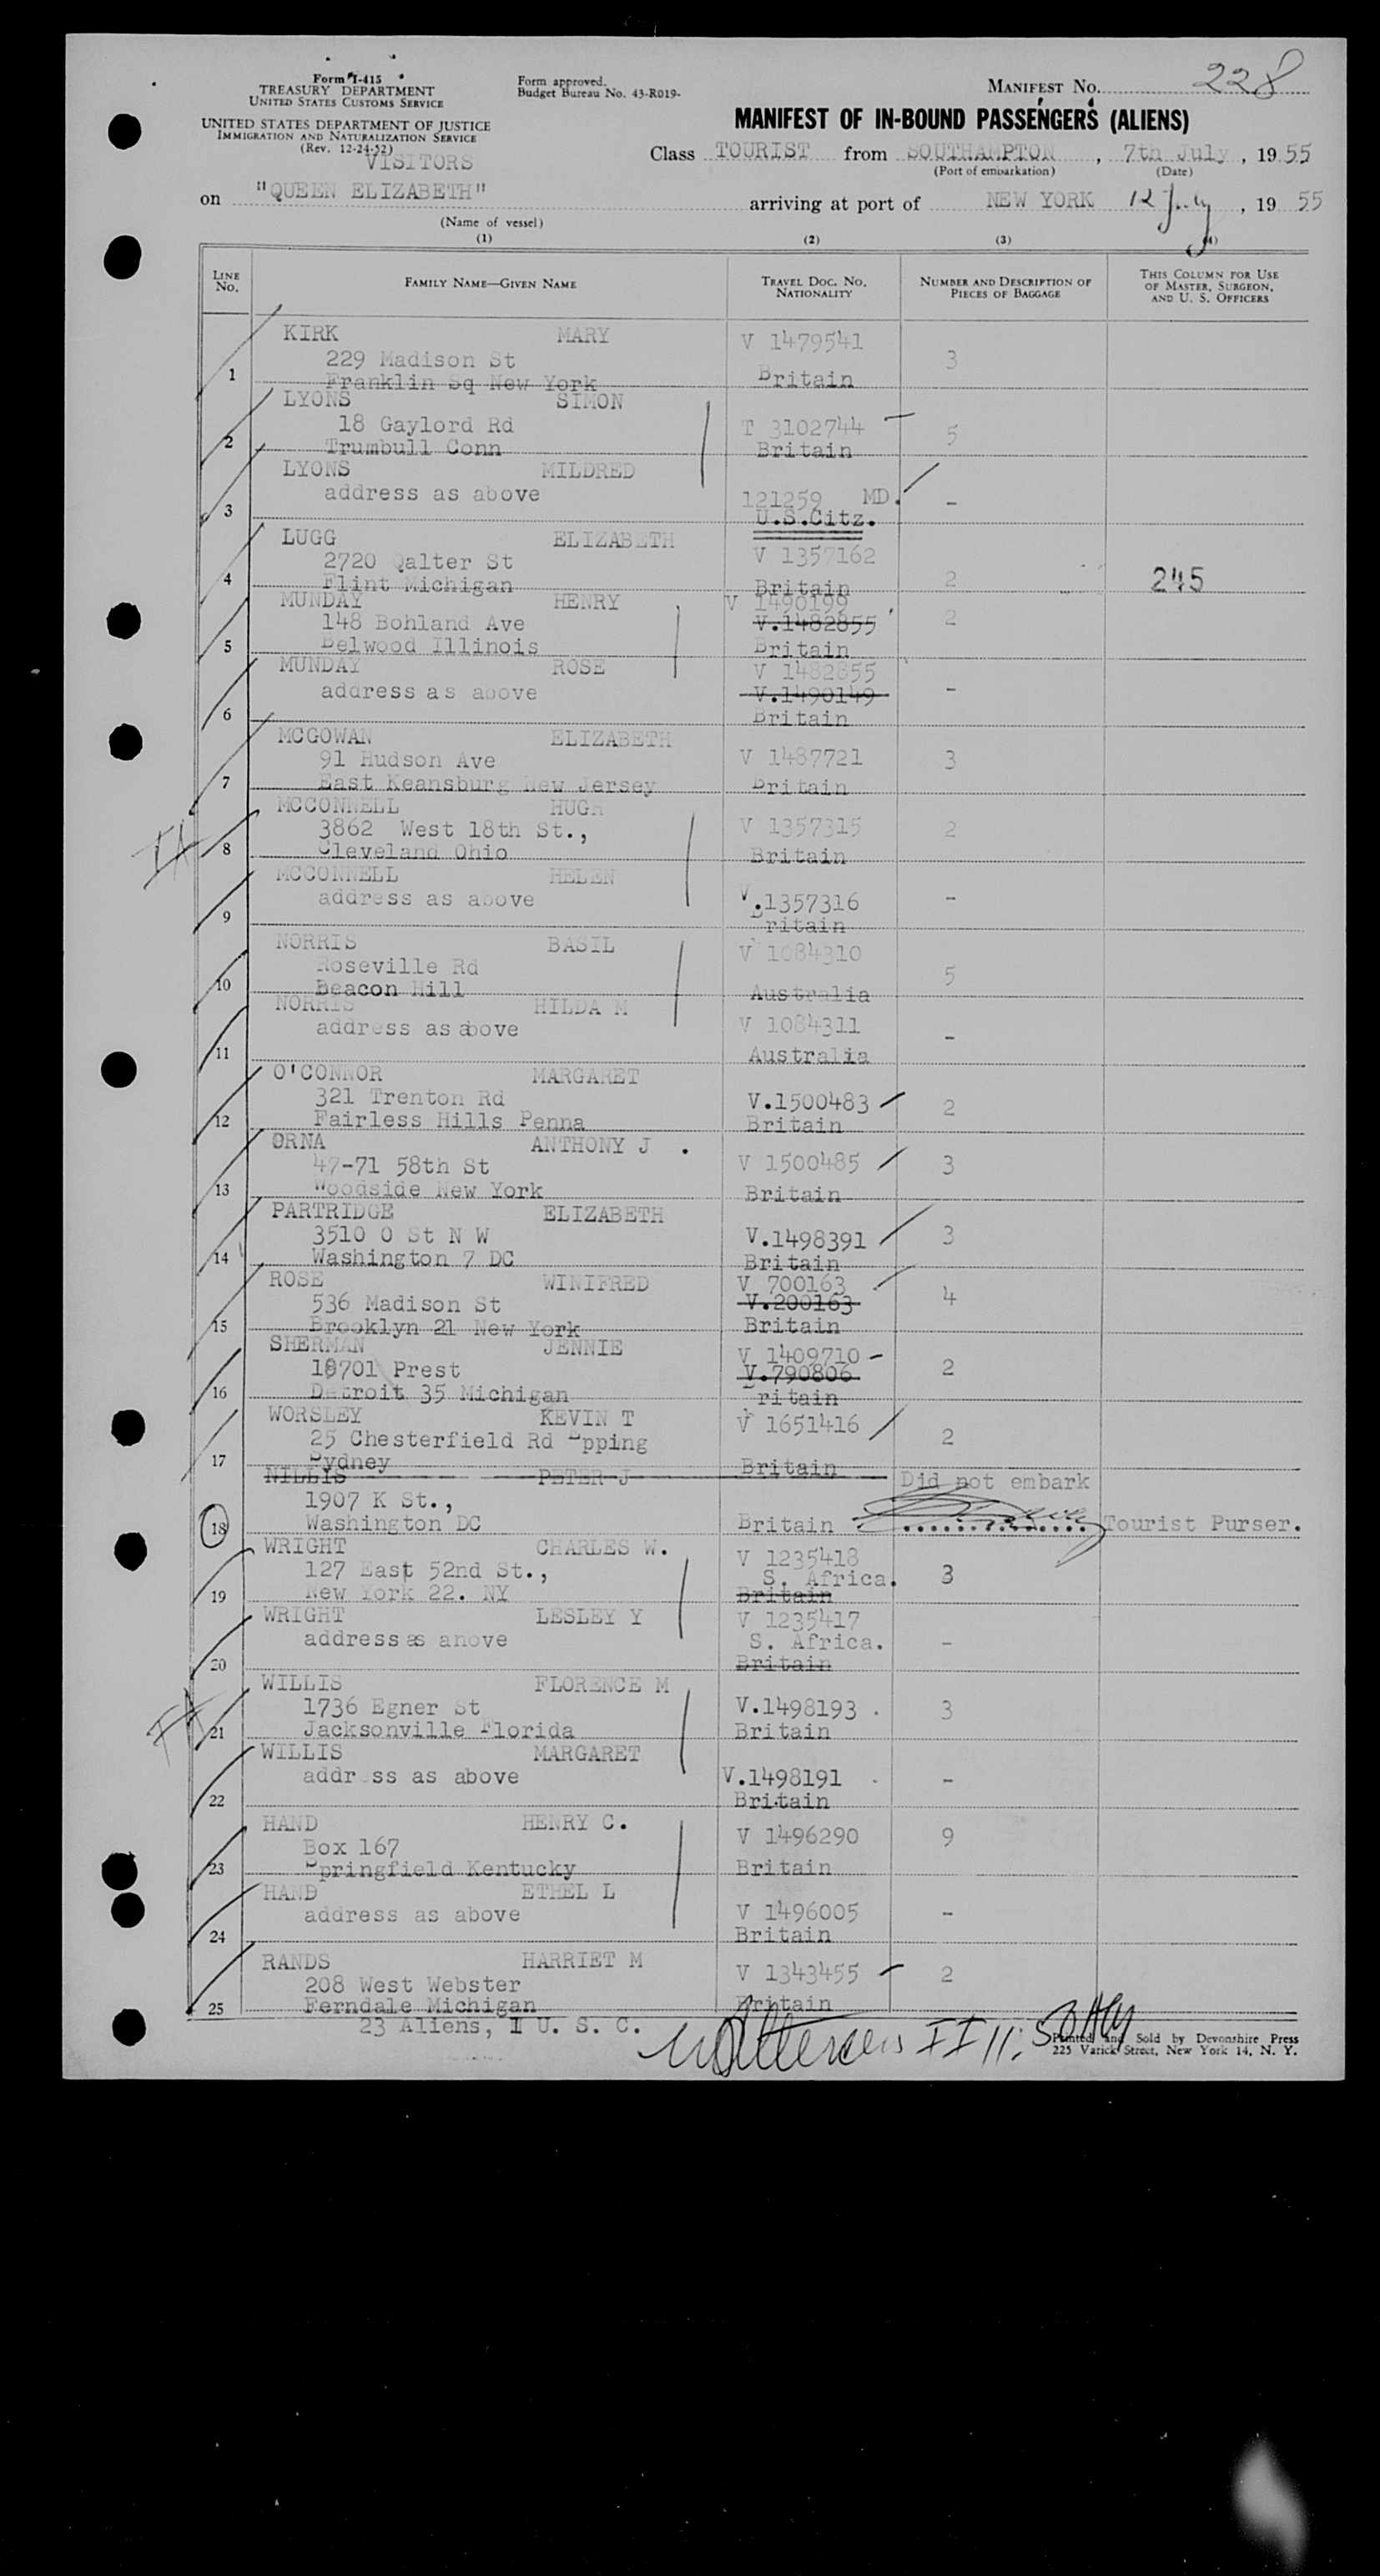 Form I-415
TREASURY DEPARTMENT
UNITED STATES CUSTOMS SERVICE
UNITED STATES DEPARTMENT OF JUSTICE
IMMIGRATION AND NATURALIZATION SERVICE
(Rev. 12-24-52)
VISITORS
Form approved.
Budget Bureau No. 43-R019-
MANIFEST No. 228
MANIFEST OF IN-BOUND PASSENGERS (ALIENS)
Class TOURIST from SOUTHAMPTON, 7th July, 1955
(Port of embarkation) (Date)
on "QUEEN ELIZABETH" arriving at port of NEW YORK 12 July, 19 55
(Name of vessel)
(1) (2) (3) (4)
LINE No. FAMILY NAME—GIVEN NAME TRAVEL DOC. No. NATIONALITY NUMBER AND DESCRIPTION OF PIECES OF BAGGAGE THIS COLUMN FOR USE OF MASTER, SURGEON, AND U. S. OFFICERS
KIRK MARY V 1479541
229 Madison St 3
1 Franklin Sq New York Britain
LYONS SIMON
18 Gaylord Rd T 3102744 5
2 Trumbull Conn Britain
LYONS MILDRED
address as above 121259 MD. -
3 U.S.Citz.
LUGG ELIZABETH
2720 Qalter St V 1357162
4 Flint Michigan Britain 2 245
MUNDAY HENRY V 1490199
148 Bohland Ave V.1482855 2
5 Belwood Illinois Britain
MUNDAY ROSE V 1482855
address as above V.1490149 -
6 Britain
MCGOWAN ELIZABETH
91 Hudson Ave V 1487721 3
7 East Keansburg New Jersey Britain
MCCONNELL HUGH
3862 West 18th St., V 1357315 2
8 Cleveland Ohio Britain
MCCONNELL HELEN
address as above V.1357316 -
9 Britain
NORRIS BASIL V 1084310
Roseville Rd 5
10 Beacon Hill Australia
NORRIS HILDA M
address as above V 1084311 -
11 Australia
O'CONNOR MARGARET
321 Trenton Rd V.1500483 2
12 Fairless Hills Penna Britain
ORNA ANTHONY J .
47-71 58th St V 1500485 3
13 Woodside New York Britain
PARTRIDGE ELIZABETH
3510 O St N W V.1498391 3
14 Washington 7 DC Britain
ROSE WINIFRED V 700163
536 Madison St V.200163 4
15 Brooklyn 21 New York Britain
SHERMAN JENNIE V 1409710
18701 Prest V.790806 2
16 Detroit 35 Michigan Britain
WORSLEY KEVIN T V 1651416
25 Chesterfield Rd Epping 2
17 Sydney Britain
NILLIS PETER J Did not embark
1907 K St.,
18 Washington DC Britain Tourist Purser.
WRIGHT CHARLES W. V 1235418
127 East 52nd St., S. Africa. 3
19 New York 22. NY Britain
WRIGHT LESLEY Y V 1235417
address as anove S. Africa. -
20 Britain
WILLIS FLORENCE M
1736 Egner St V.1498193 3
21 Jacksonville Florida Britain
WILLIS MARGARET
addr ss as above V.1498191 -
22 Britain
HAND HENRY C.
Box 167 V 1496290 9
23 Springfield Kentucky Britain
HAND ETHEL L
address as above V 1496005 -
24 Britain
RANDS HARRIET M
208 West Webster V 1343455 2
25 Ferndale Michigan Britain
23 Aliens, 1 U. S. C.
Printed and Sold by Devonshire Press
225 Varick Street, New York 14, N. Y.